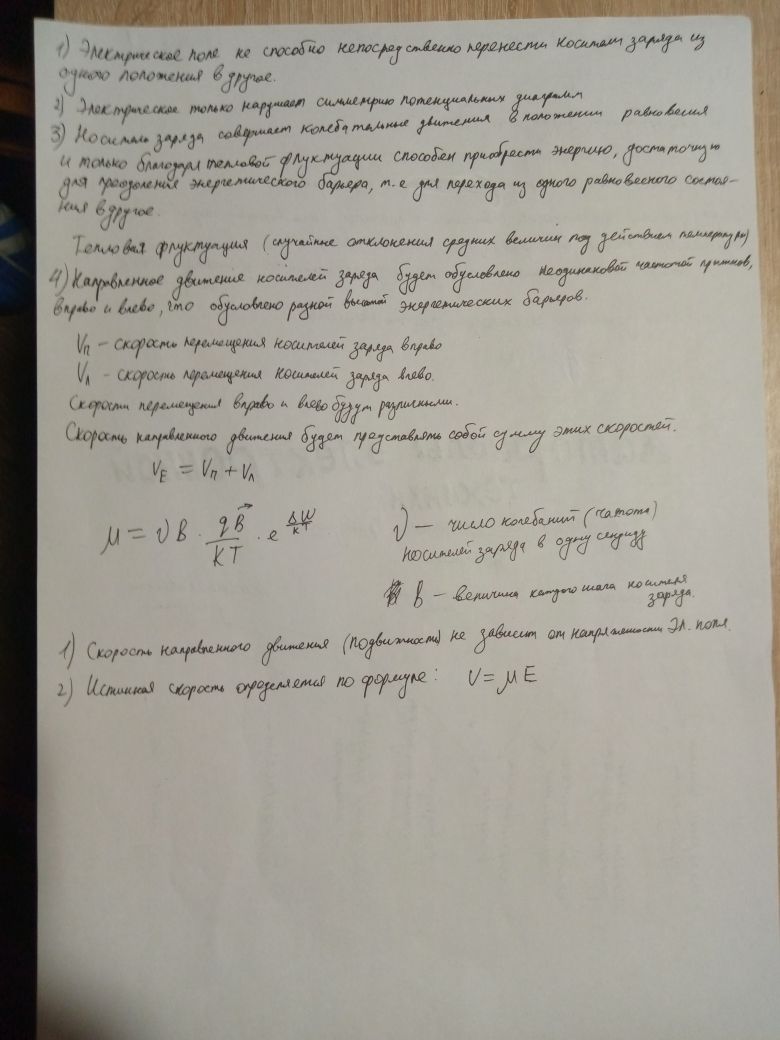 1) Электрическое поле не способно непосредственно перенести носители заряда из
одного положения в другое.
2) Электрическое только нарушает симметрию потенциальных диаграмм
3) Носитель заряда совершает колебательные движения в положении равновесия
и только благодаря тепловой флуктуации способен приобрести энергию, достаточную
для преодоления энергетического барьера, т.е для перехода из одного равновесного состоя-
ния в другое.
Тепловая флуктуация (случайные отклонения средних величин под действием температуры)
4) Направленное движение носителей заряда будет обусловлено неодинаковой частотой прыжков,
вправо и влево, что обусловлено разной высотой энергетических барьеров.
Vп – скорость перемещения носителей заряда вправо
Vл - скорость перемещения носителей заряда влево.
Скорости перемещения вправо и влево будут различными.
Скорость направленного движения будет представлять собой сумму этих скоростей.
VE = Vп + Vл
μ = ν B · qB⃗/KT · e^ΔW/KT
ν — число колебаний (частота)
носителей заряда в одну секунду
B – величина каждого шага носителя
заряда.
1) Скорость направленного движения (подвижность) не зависит от напряженности эл. поля.
2) Истинная скорость определяется по формуле: V = μ E